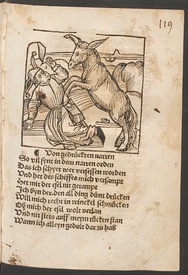 119
¶ Von gedruckten narren
So vil seint in dem narren orden
Das ich schyer wer versessen worden
Und het des schiffes mich versumpt
Het mir der esel nit gerumpt
Ich byn der den all ding bünt drucken
Will mich recht in winckel schmucken
Ob mich der esel wolt verlan
Und nit stets auff meym rücken stan
Wann ich alleyn gedult dar zu hab